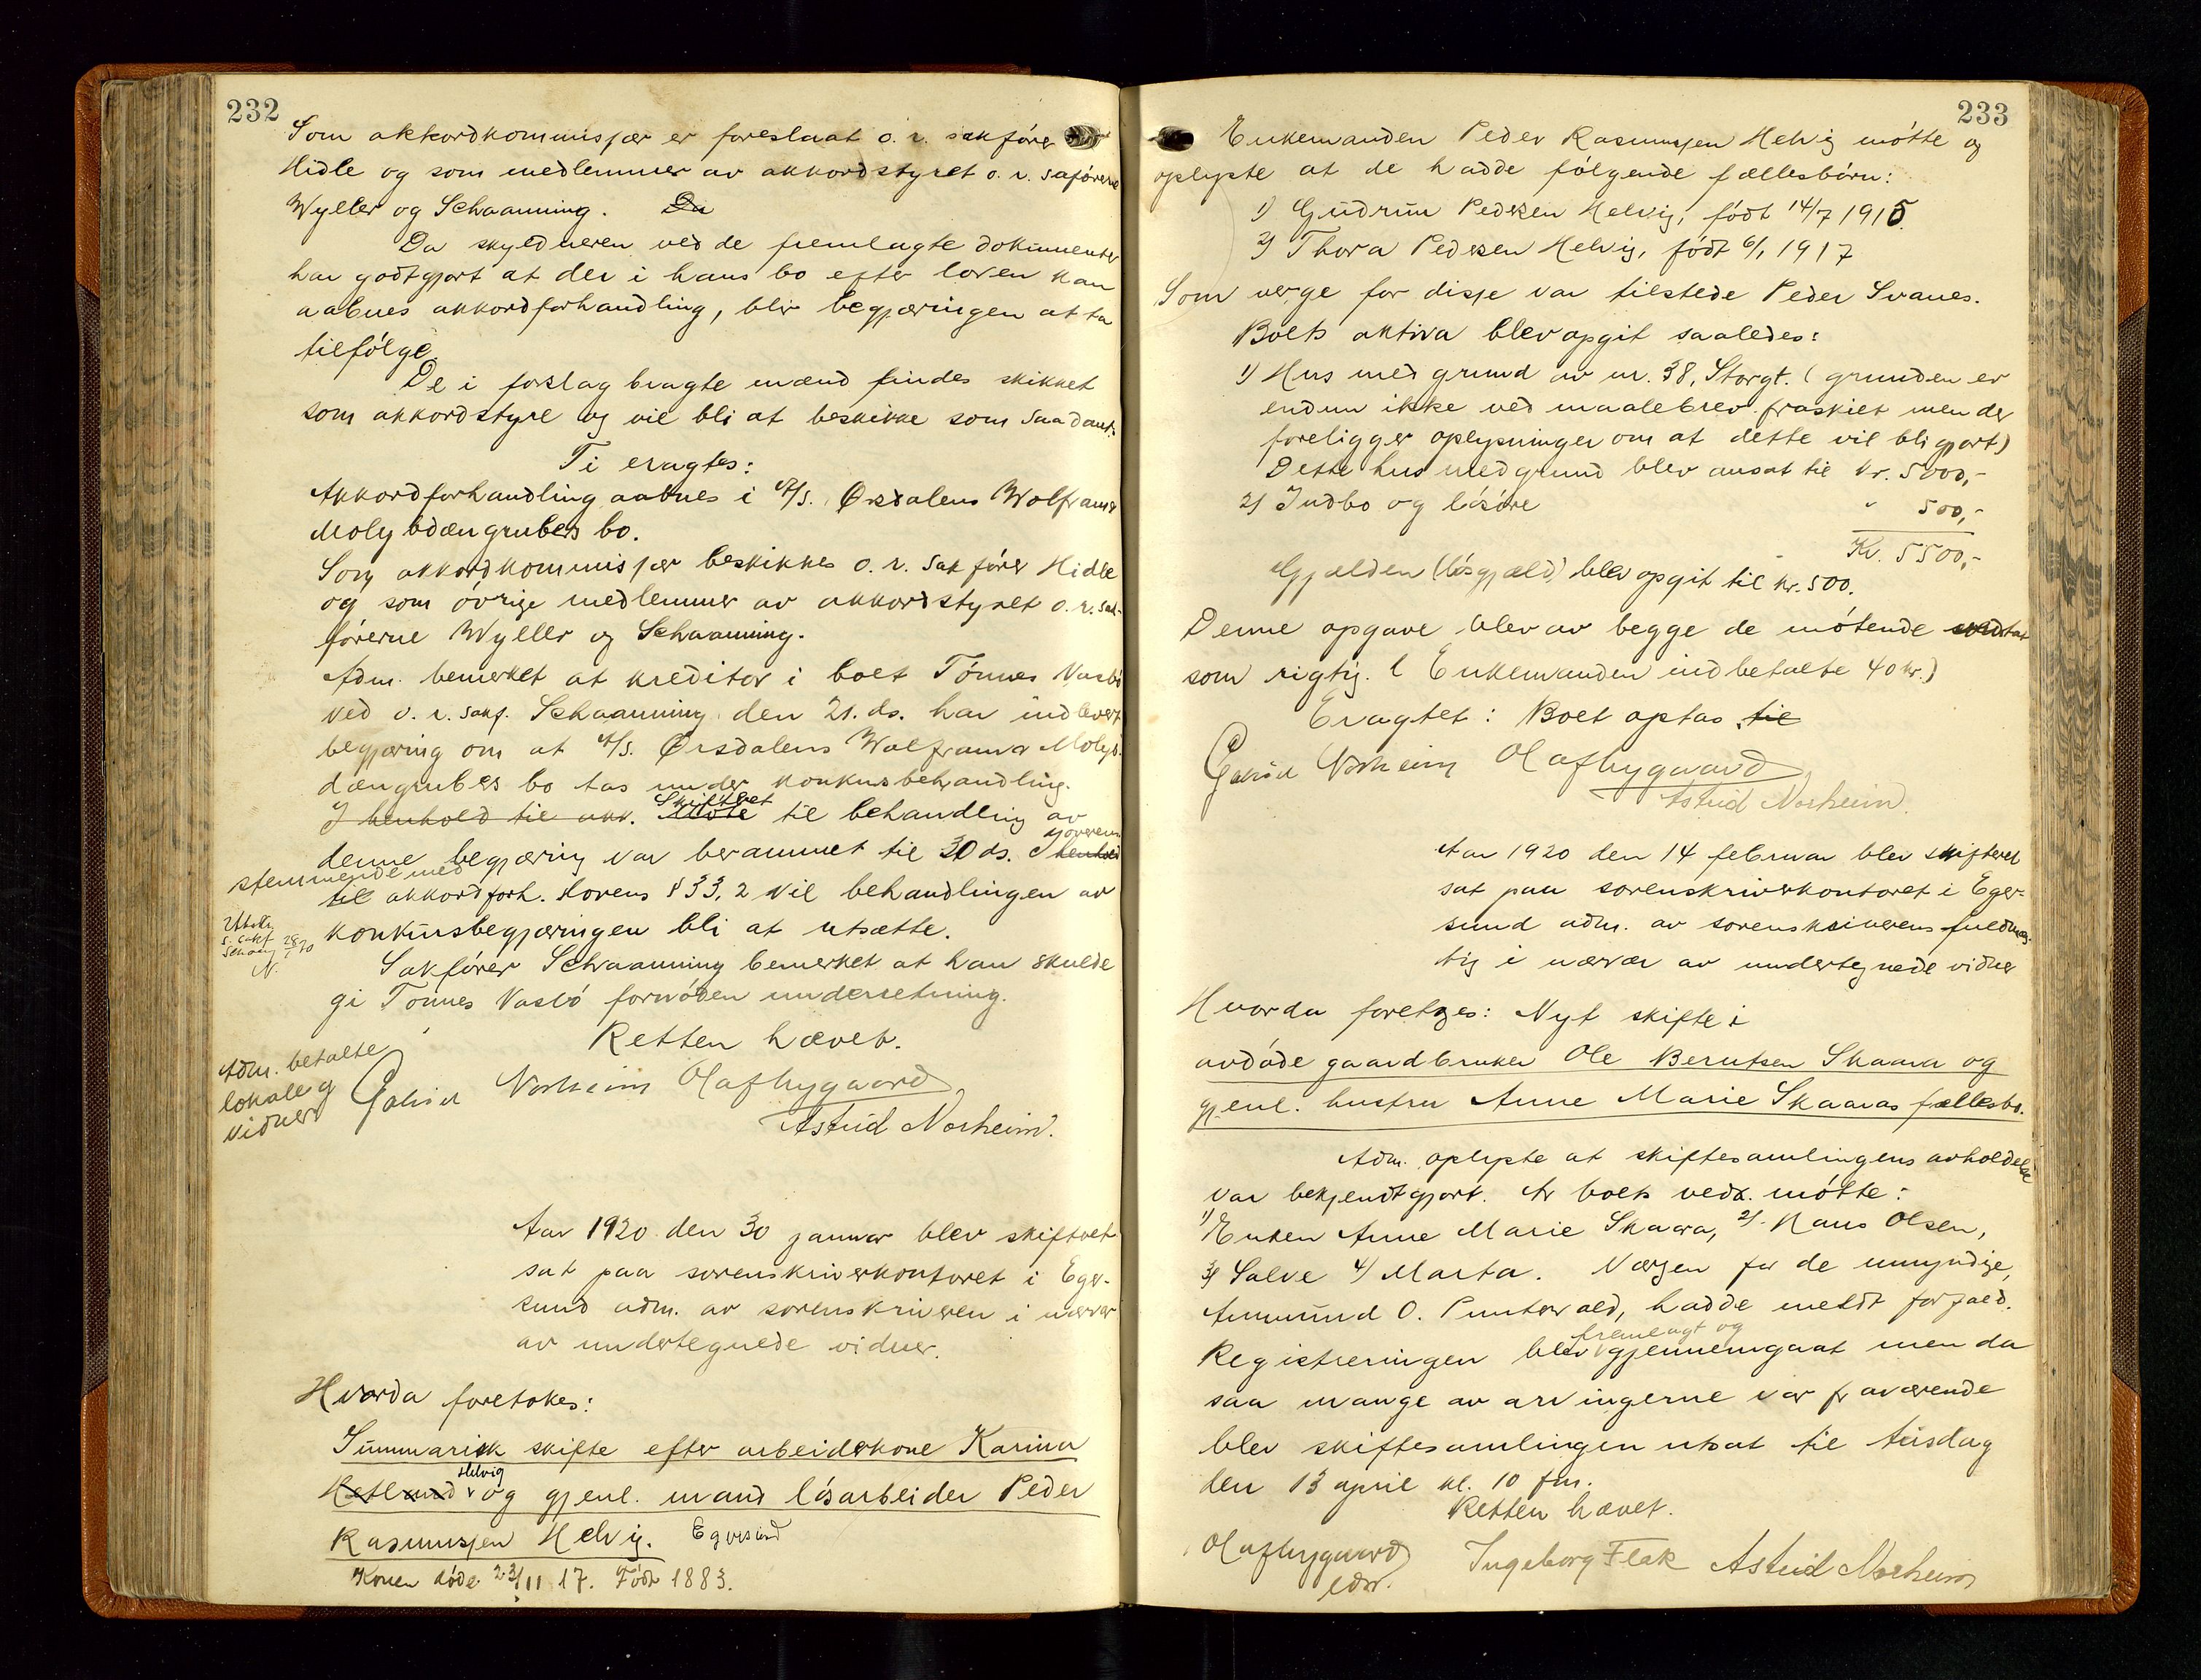 232
Som akkordkommissær er foreslaat o. r. sakfører
Hidle og som medlemmer av akkordstyret o. r. saførerne
Wyller og Schaanning. Da
Da skyldneren ved de fremlagte dokumenter
har godtgjort at der i hans bo efter loven kan
aabnes akkordforhandling, blir begjæringen at ta
tilfølge.
De i forslag bragte mænd findes skikket
som akkordstyre og vil bli at beskikke som saadant.
Ti eragtes:
Akkordforhandling aabnes i A/S. Ørsdalens Wolfram &
Molybdængrubers bo.
Som akkordkommissjær beskikkes o. r. sakfører Hidle
og som øvrige medlemmer av akkordstyret o. r. sak-
førerne Wyller og Schaanning.
Adm. bemerket at kreditor i boet Tønnes Vasbø
ved o. r. sakf. Schaanning den 21. ds. har indlevert
begjæring om at A/S. Ørsdalens Wolfram & Molyb-
dængrubers bo tas under konkursbehandling.
I henhold til akk. Møte Skifteret til behandling av
denne begjæring var berammet til 30 ds. I henhold overens
stemmende med
til akkordforh. lovens § 33, 2 vil behandlingen av
konkursbegjæringen bli at utsætte.
Utskr.
s. sakf.
Schang 28/1 20
N.
Sakfører Schaanning bemerket at han skulde
gi Tønnes Vasbø fornøden underretning.
Retten hævet.
Adm. betalte
lokale og
vidner
Gabriel Norheim Olaf Nygaard
Astrid Norheim.
Aar 1920 den 30 januar blev skifteret
sat paa sorenskriverkontoret i Eger-
sund adm. av sorenskriveren i nærvær
av undertegnede vidner.
Hvorda foretokes:
Summarisk skifte efter arbeiderkone Karina
Hetland Helvig og gjenl. mand løsarbeider Peder
Rasmussen Helvig. Egersund
Konen døde 23/11 17. Født 1883.
233
Enkemanden Peder Rasmussen Helvig møtte og
oplyste at de hadde følgende fællesbørn:
1) Gudrun Pedersen Helvig, født 14/7 1915.
2) Thora Pedersen Helvig, født 6/1 1917
Som verge for disse var tilstede Peder Svanes.
Boets aktiva blev opgit saaledes:
1) Hus med grund av nr. 38, Storgt. (grunden er
endnu ikke ved maalebrev fraskilt men der
foreligger oplysninger om at dette vil bli gjort)
Dette hus med grund blev ansat til kr. 5000,-
2) Indbo og løsøre " 500,-
Kr. 5500,-
Gjælden (løsgjæld) blev opgit til kr. 500.
Denne opgave blev av begge de møtende
som rigtig. (Enkemanden indbetalte 40 kr.)
Eragtet: Boet optas til
Gabriel Norheim Olaf Nygaard
Astrid Norheim.
Aar 1920 den 14 februar blev skifteret
sat paa sorenskriverkontoret i Eger-
sund adm. av sorenskriverens fuldmæg-
tig i nærvær av undertegnede vidner
Hvorda foretoges: Nyt skifte i
avdøde gaardbruker Ole Berntsen Skaara og
gjenl. hustru Anne Marie Skaaras fællesbo.
Adm. oplyste at skiftesamlingens avholdelse
var bekjendtgjort. Av boets vedk. møtte:
1) Enken Anne Marie Skaara, 2). Hans Olsen,
3) Salve 4) Marta. Værgen for de umyndige,
Ammund O. Puntervold, hadde meldt forfald.
Registreringen blev fremlagt og gjennemgaat men da
saa mange av arvingerne var fraværende
blev skiftesamlingen utsat til tirsdag
den 13 april kl. 10 fm.
Retten hævet.
Olaf Nygaard Ingeborg Flak Astrid Norheim
edsv.